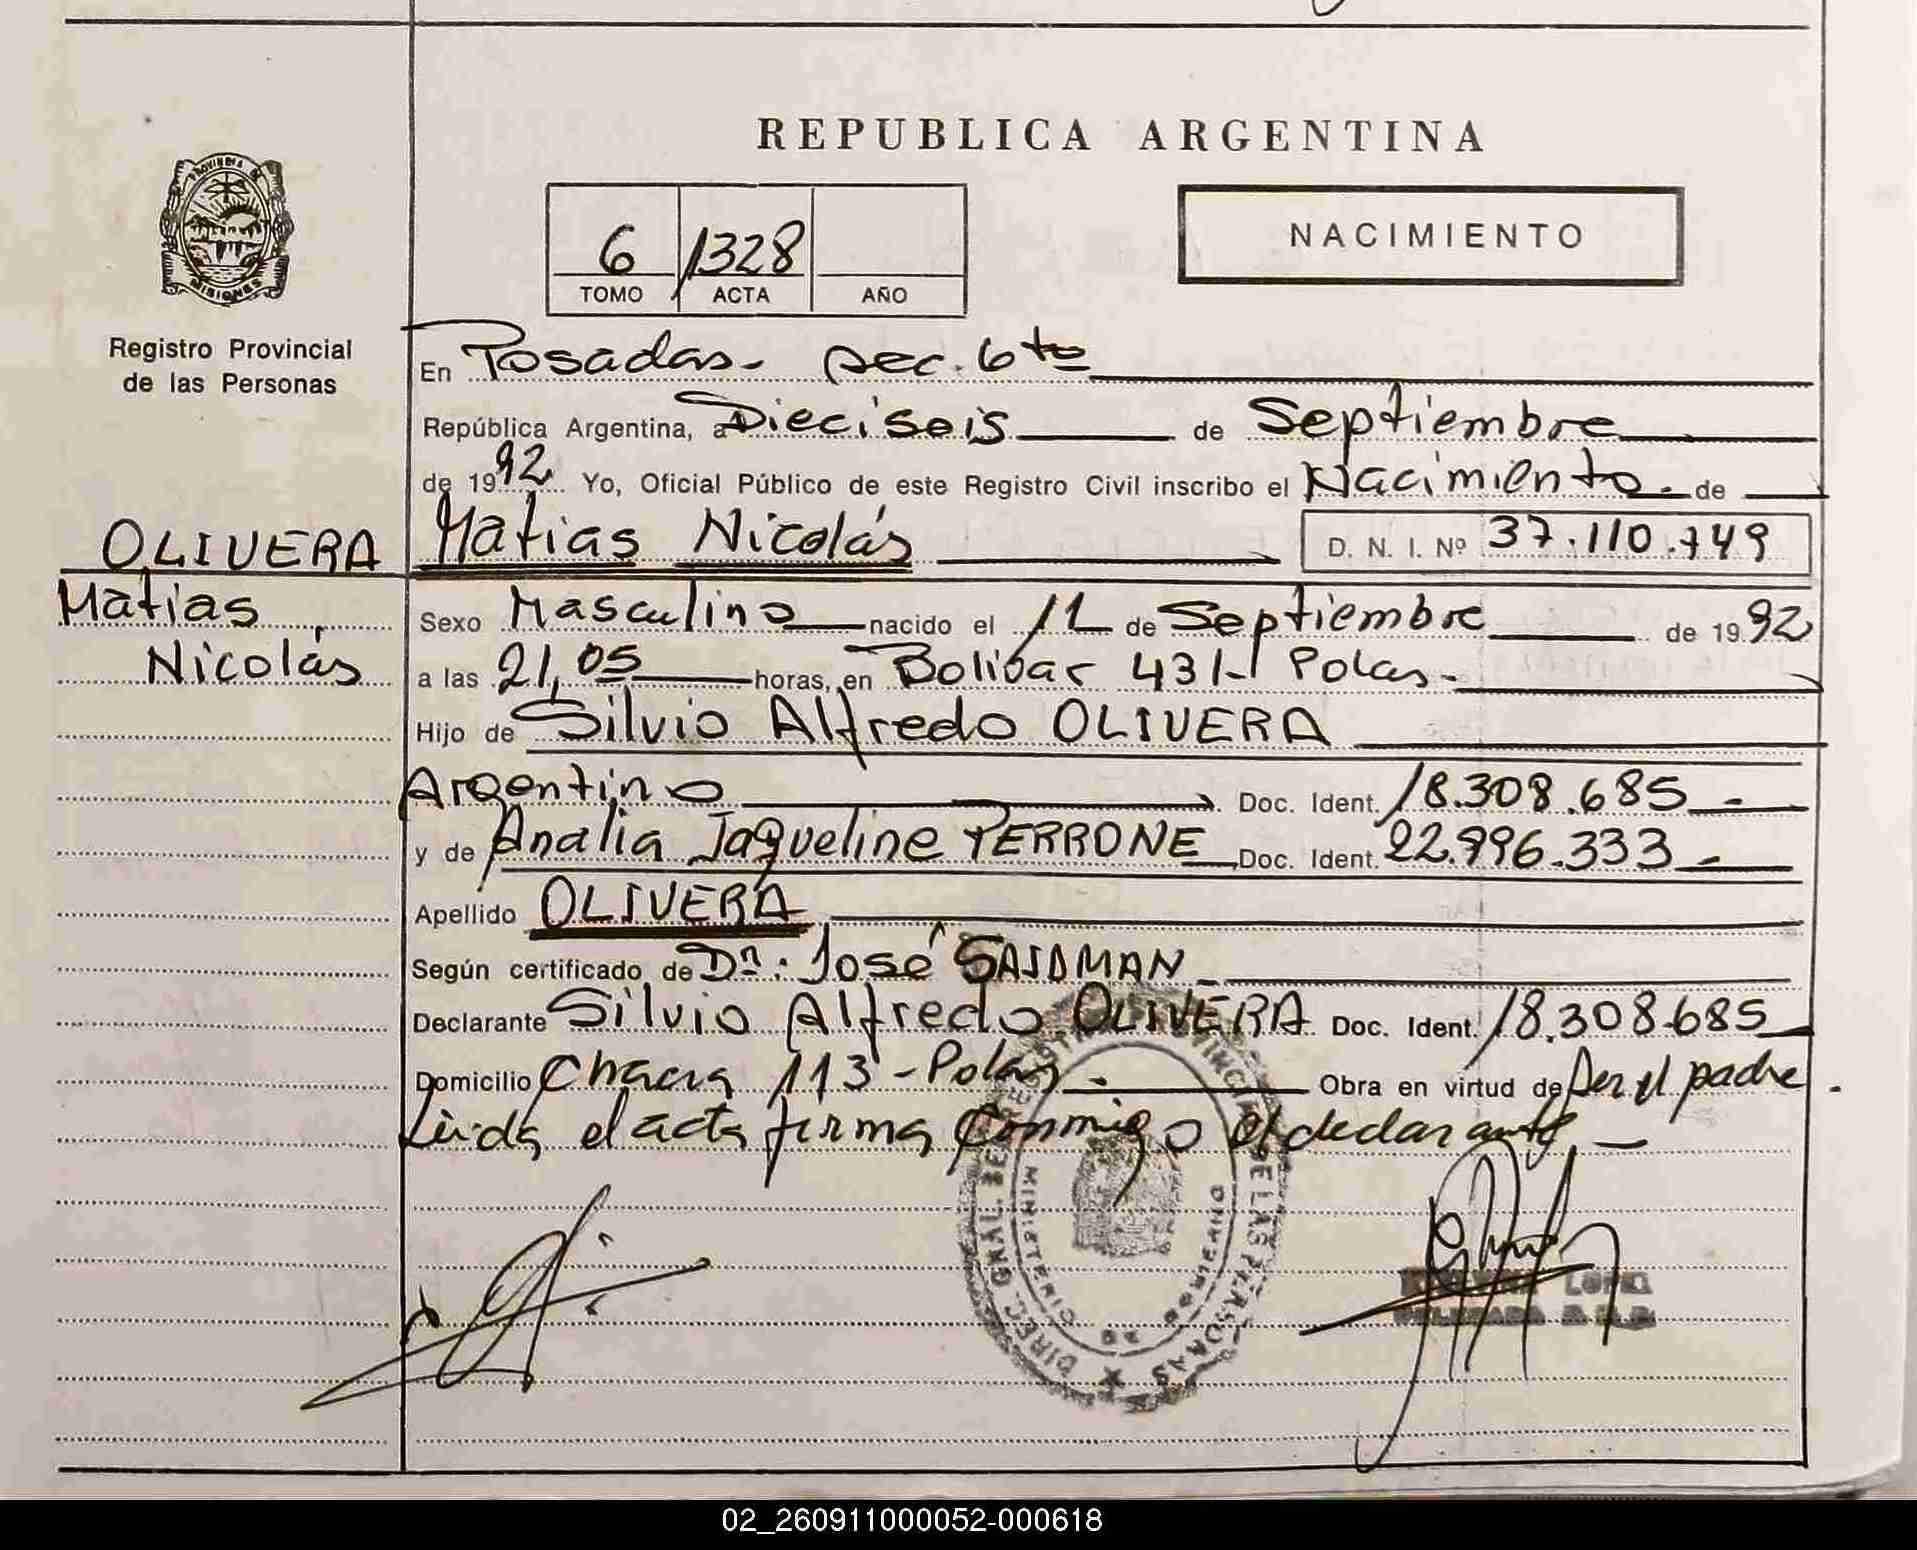 REPUBLICA ARGENTINA
PROVINCIA DE
MISIONES
6 1328
TOMO ACTA AÑO
NACIMIENTO
Registro Provincial
de las Personas
En Posadas - sec. 6ta
República Argentina, a Dieciseis de Septiembre
de 1992 Yo, Oficial Público de este Registro Civil inscribo el Nacimiento - de
OLIVERA Matias Nicolás D. N. I. Nº 37.110.749
Matias Sexo Masculino nacido el 11 de Septiembre de 1992
Nicolás a las 21,05 horas, en Bolivar 431- Pdas.-
Hijo de Silvio Alfredo OLIVERA
Argentino Doc. Ident. 18.308.685-
y de Analia Jaqueline PERRONE Doc. Ident. 22.996.333-
Apellido OLIVERA
Según certificado de Dr. José SAIDMAN
Declarante Silvio Alfredo OLIVERA Doc. Ident. 18.308.685
Domicilio Chacra 113 - Pdas. - Obra en virtud de ser el padre.
Leida el acta firma conmigo el declarante -
DIREC. GRAL. DE REGISTRO PROVINCIAL DE LAS PERSONAS
MINISTERIO DE GOBIERNO
02_260911000052-000618